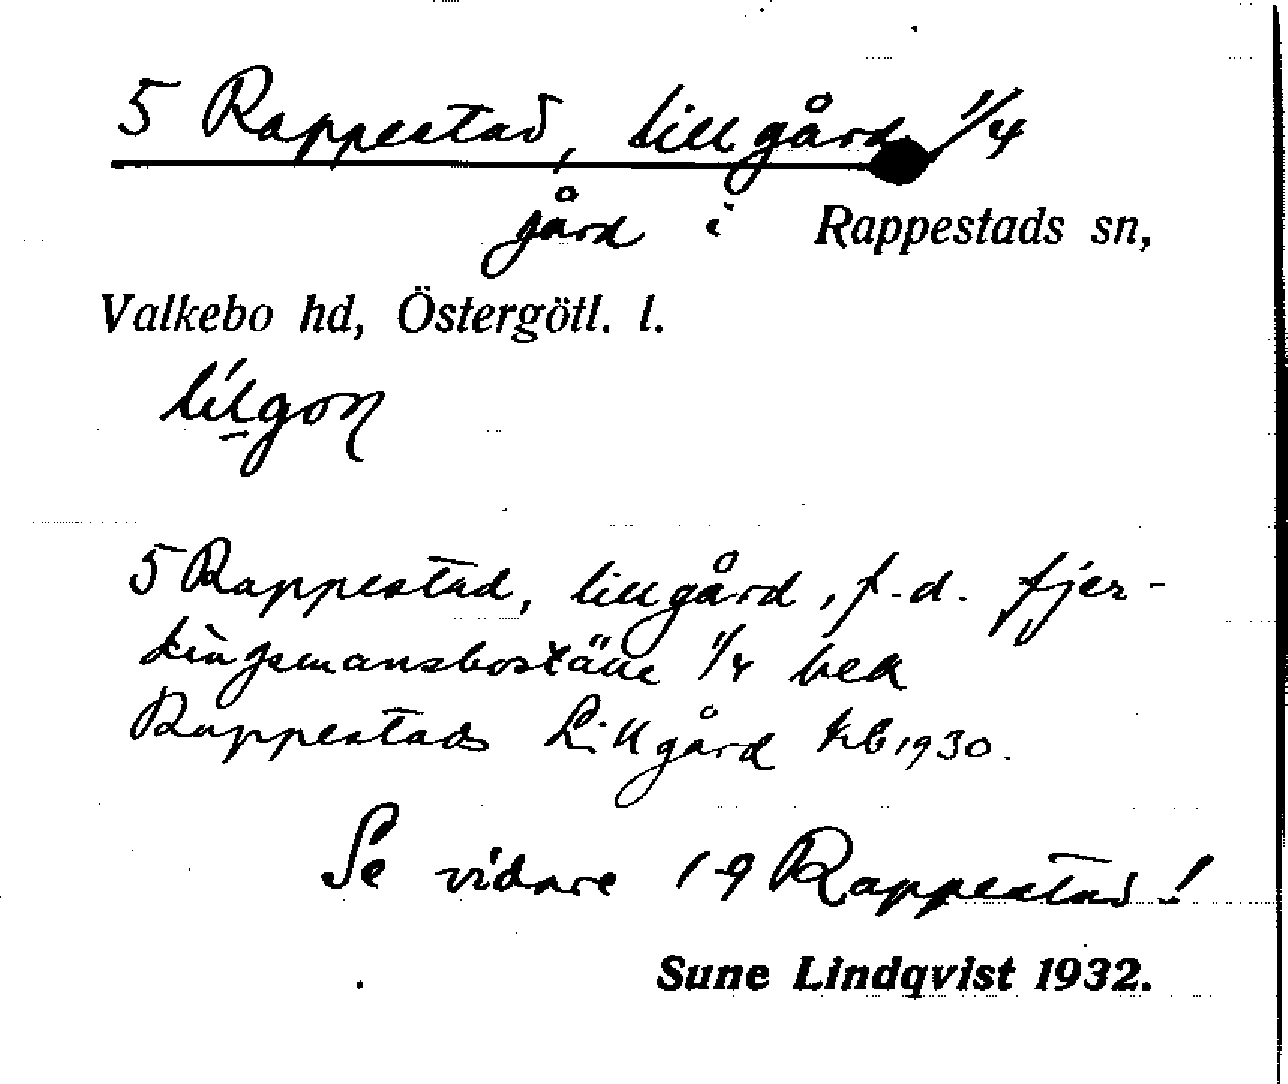 5 Rappestad, lillgård 1/4
gård i Rappestads sn,
Valkebo hd, Östergötl. l.
lílgoɳ
5 Rappestad, lillgård, f.d. fjer-
dingsmansboställe 1/4
Rappestads Lillgård kb 1930.
Se vidare 1-9 Rappestad!
Sune Lindqvist 1932.